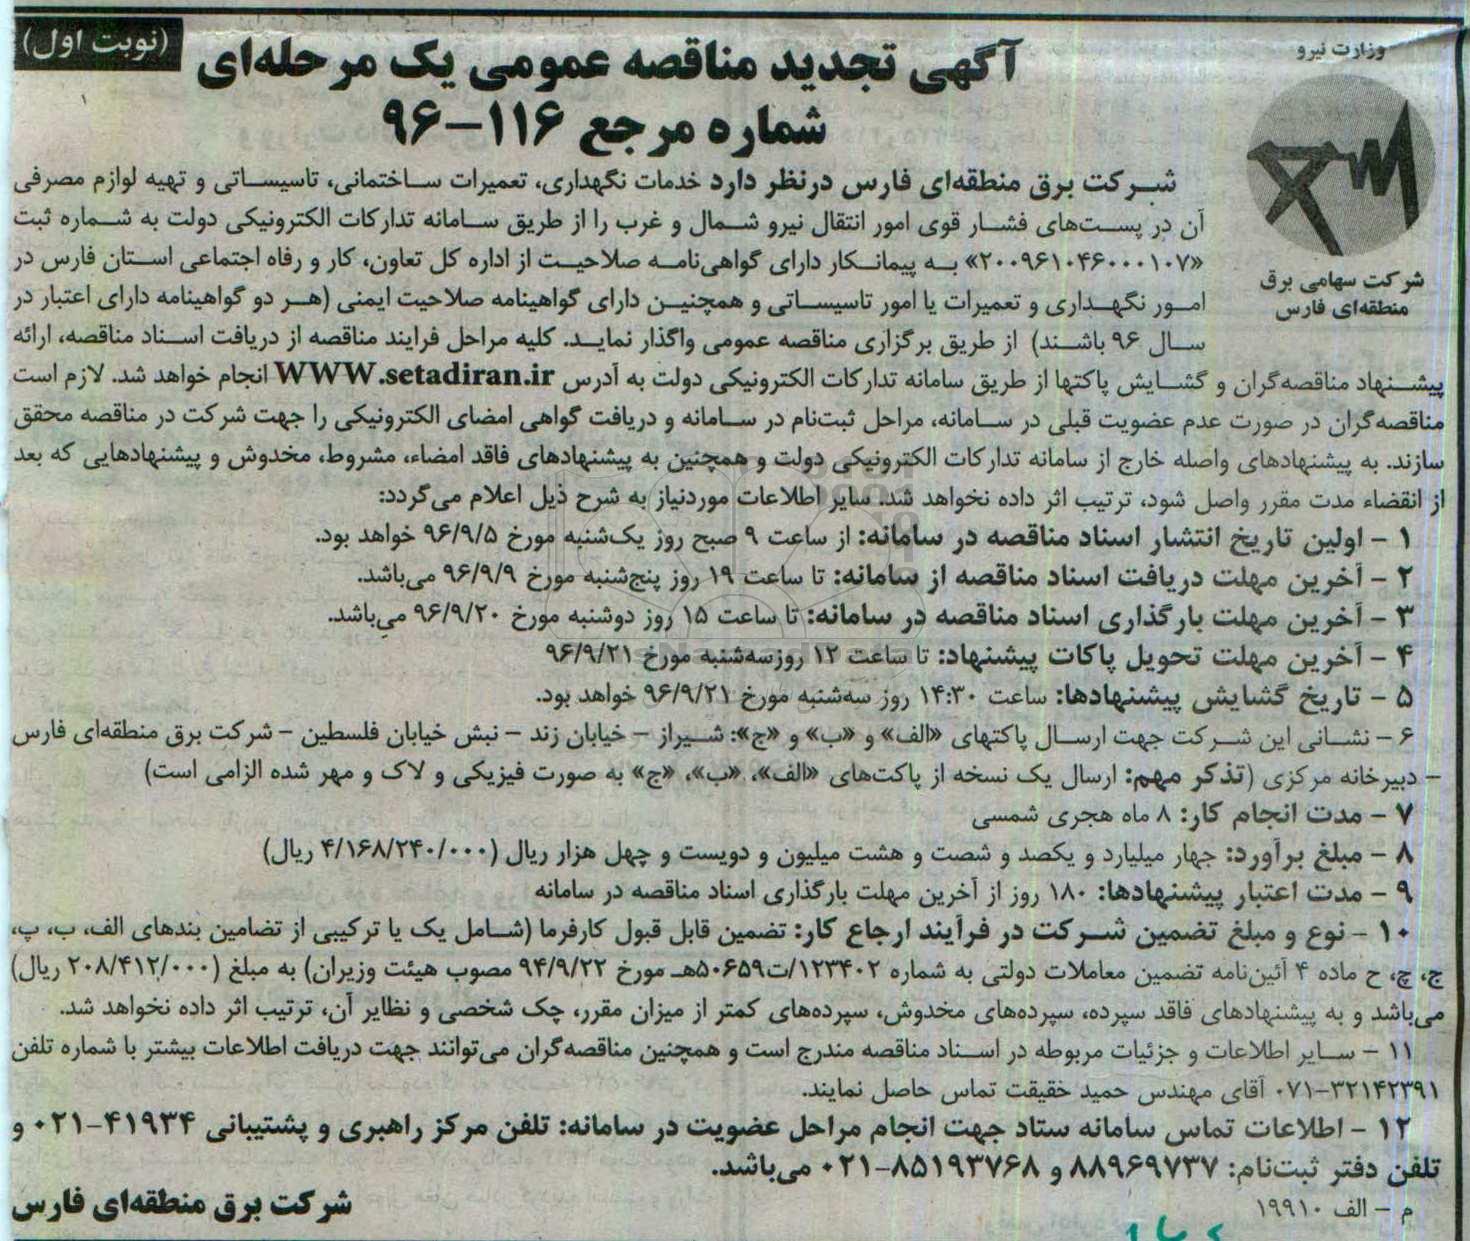 (نوبت اول)
وزارت نیرو
آگهی تجدید مناقصه عمومی یک مرحله‌ای
شماره مرجع ۱۱۶-۹۶
شرکت سهامی برق
منطقه‌ای فارس
شرکت برق منطقه‌ای فارس درنظر دارد خدمات نگهداری، تعمیرات ساختمانی، تاسیساتی و تهیه لوازم مصرفی
آن در پست‌های فشار قوی امور انتقال نیرو شمال و غرب را از طریق سامانه تدارکات الکترونیکی دولت به شماره ثبت
«۲۰۰۹۶۱۰۴۶۰۰۰۱۰۷» به پیمانکار دارای گواهی‌نامه صلاحیت از اداره کل تعاون، کار و رفاه اجتماعی استان فارس در
امور نگهداری و تعمیرات یا امور تاسیساتی و همچنین دارای گواهینامه صلاحیت ایمنی (هر دو گواهینامه دارای اعتبار در
سال ۹۶ باشند) از طریق برگزاری مناقصه عمومی واگذار نماید. کلیه مراحل فرایند مناقصه از دریافت اسناد مناقصه، ارائه
پیشنهاد مناقصه‌گران و گشایش پاکتها از طریق سامانه تدارکات الکترونیکی دولت به آدرس WWW.setadiran.ir انجام خواهد شد. لازم است
مناقصه‌گران در صورت عدم عضویت قبلی در سامانه، مراحل ثبت‌نام در سامانه و دریافت گواهی امضای الکترونیکی را جهت شرکت در مناقصه محقق
سازند. به پیشنهادهای واصله خارج از سامانه تدارکات الکترونیکی دولت و همچنین به پیشنهادهای فاقد امضاء، مشروط، مخدوش و پیشنهادهایی که بعد
از انقضاء مدت مقرر واصل شود، ترتیب اثر داده نخواهد شد. سایر اطلاعات موردنیاز به شرح ذیل اعلام می‌گردد:
۱ - اولین تاریخ انتشار اسناد مناقصه در سامانه: از ساعت ۹ صبح روز یک‌شنبه مورخ ۹۶/۹/۵ خواهد بود.
۲ - آخرین مهلت دریافت اسناد مناقصه از سامانه: تا ساعت ۱۹ روز پنج‌شنبه مورخ ۹۶/۹/۹ می‌باشد.
۳ - آخرین مهلت بارگذاری اسناد مناقصه در سامانه: تا ساعت ۱۵ روز دوشنبه مورخ ۹۶/۹/۲۰ می‌باشد.
۴ - آخرین مهلت تحویل پاکات پیشنهاد: تا ساعت ۱۲ روزسه‌شنبه مورخ ۹۶/۹/۲۱
۵ - تاریخ گشایش پیشنهادها: ساعت ۱۴:۳۰ روز سه‌شنبه مورخ ۹۶/۹/۲۱ خواهد بود.
۶ - نشانی این شرکت جهت ارسال پاکتهای «الف» و «ب» و «ج»: شیراز - خیابان زند - نبش خیابان فلسطین - شرکت برق منطقه‌ای فارس
- دبیرخانه مرکزی (تذکر مهم: ارسال یک نسخه از پاکت‌های «الف»، «ب»، «ج» به صورت فیزیکی و لاک و مهر شده الزامی است)
۷ - مدت انجام کار: ۸ ماه هجری شمسی
۸ - مبلغ برآورد: چهار میلیارد و یکصد و شصت و هشت میلیون و دویست و چهل هزار ریال (۴/۱۶۸/۲۴۰/۰۰۰ ریال)
۹ - مدت اعتبار پیشنهادها: ۱۸۰ روز از آخرین مهلت بارگذاری اسناد مناقصه در سامانه
۱۰ - نوع و مبلغ تضمین شرکت در فرآیند ارجاع کار: تضمین قابل قبول کارفرما (شامل یک یا ترکیبی از تضامین بندهای الف، ب، پ،
ج، چ، ح ماده ۴ آئین‌نامه تضمین معاملات دولتی به شماره ۱۲۳۴۰۲/ت۵۰۶۵۹هـ مورخ ۹۴/۹/۲۲ مصوب هیئت وزیران) به مبلغ (۲۰۸/۴۱۲/۰۰۰ ریال)
می‌باشد و به پیشنهادهای فاقد سپرده، سپرده‌های مخدوش، سپرده‌های کمتر از میزان مقرر، چک شخصی و نظایر آن، ترتیب اثر داده نخواهد شد.
۱۱ - سایر اطلاعات و جزئیات مربوطه در اسناد مناقصه مندرج است و همچنین مناقصه‌گران می‌توانند جهت دریافت اطلاعات بیشتر با شماره تلفن
۰۷۱-۳۲۱۴۲۳۹۱ آقای مهندس حمید حقیقت تماس حاصل نمایند.
۱۲ - اطلاعات تماس سامانه ستاد جهت انجام مراحل عضویت در سامانه: تلفن مرکز راهبری و پشتیبانی ۴۱۹۳۴-۰۲۱ و
تلفن دفتر ثبت‌نام: ۸۸۹۶۹۷۳۷ و ۸۵۱۹۳۷۶۸-۰۲۱ می‌باشد.
م - الف ۱۹۹۱۰
شرکت برق منطقه‌ای فارس